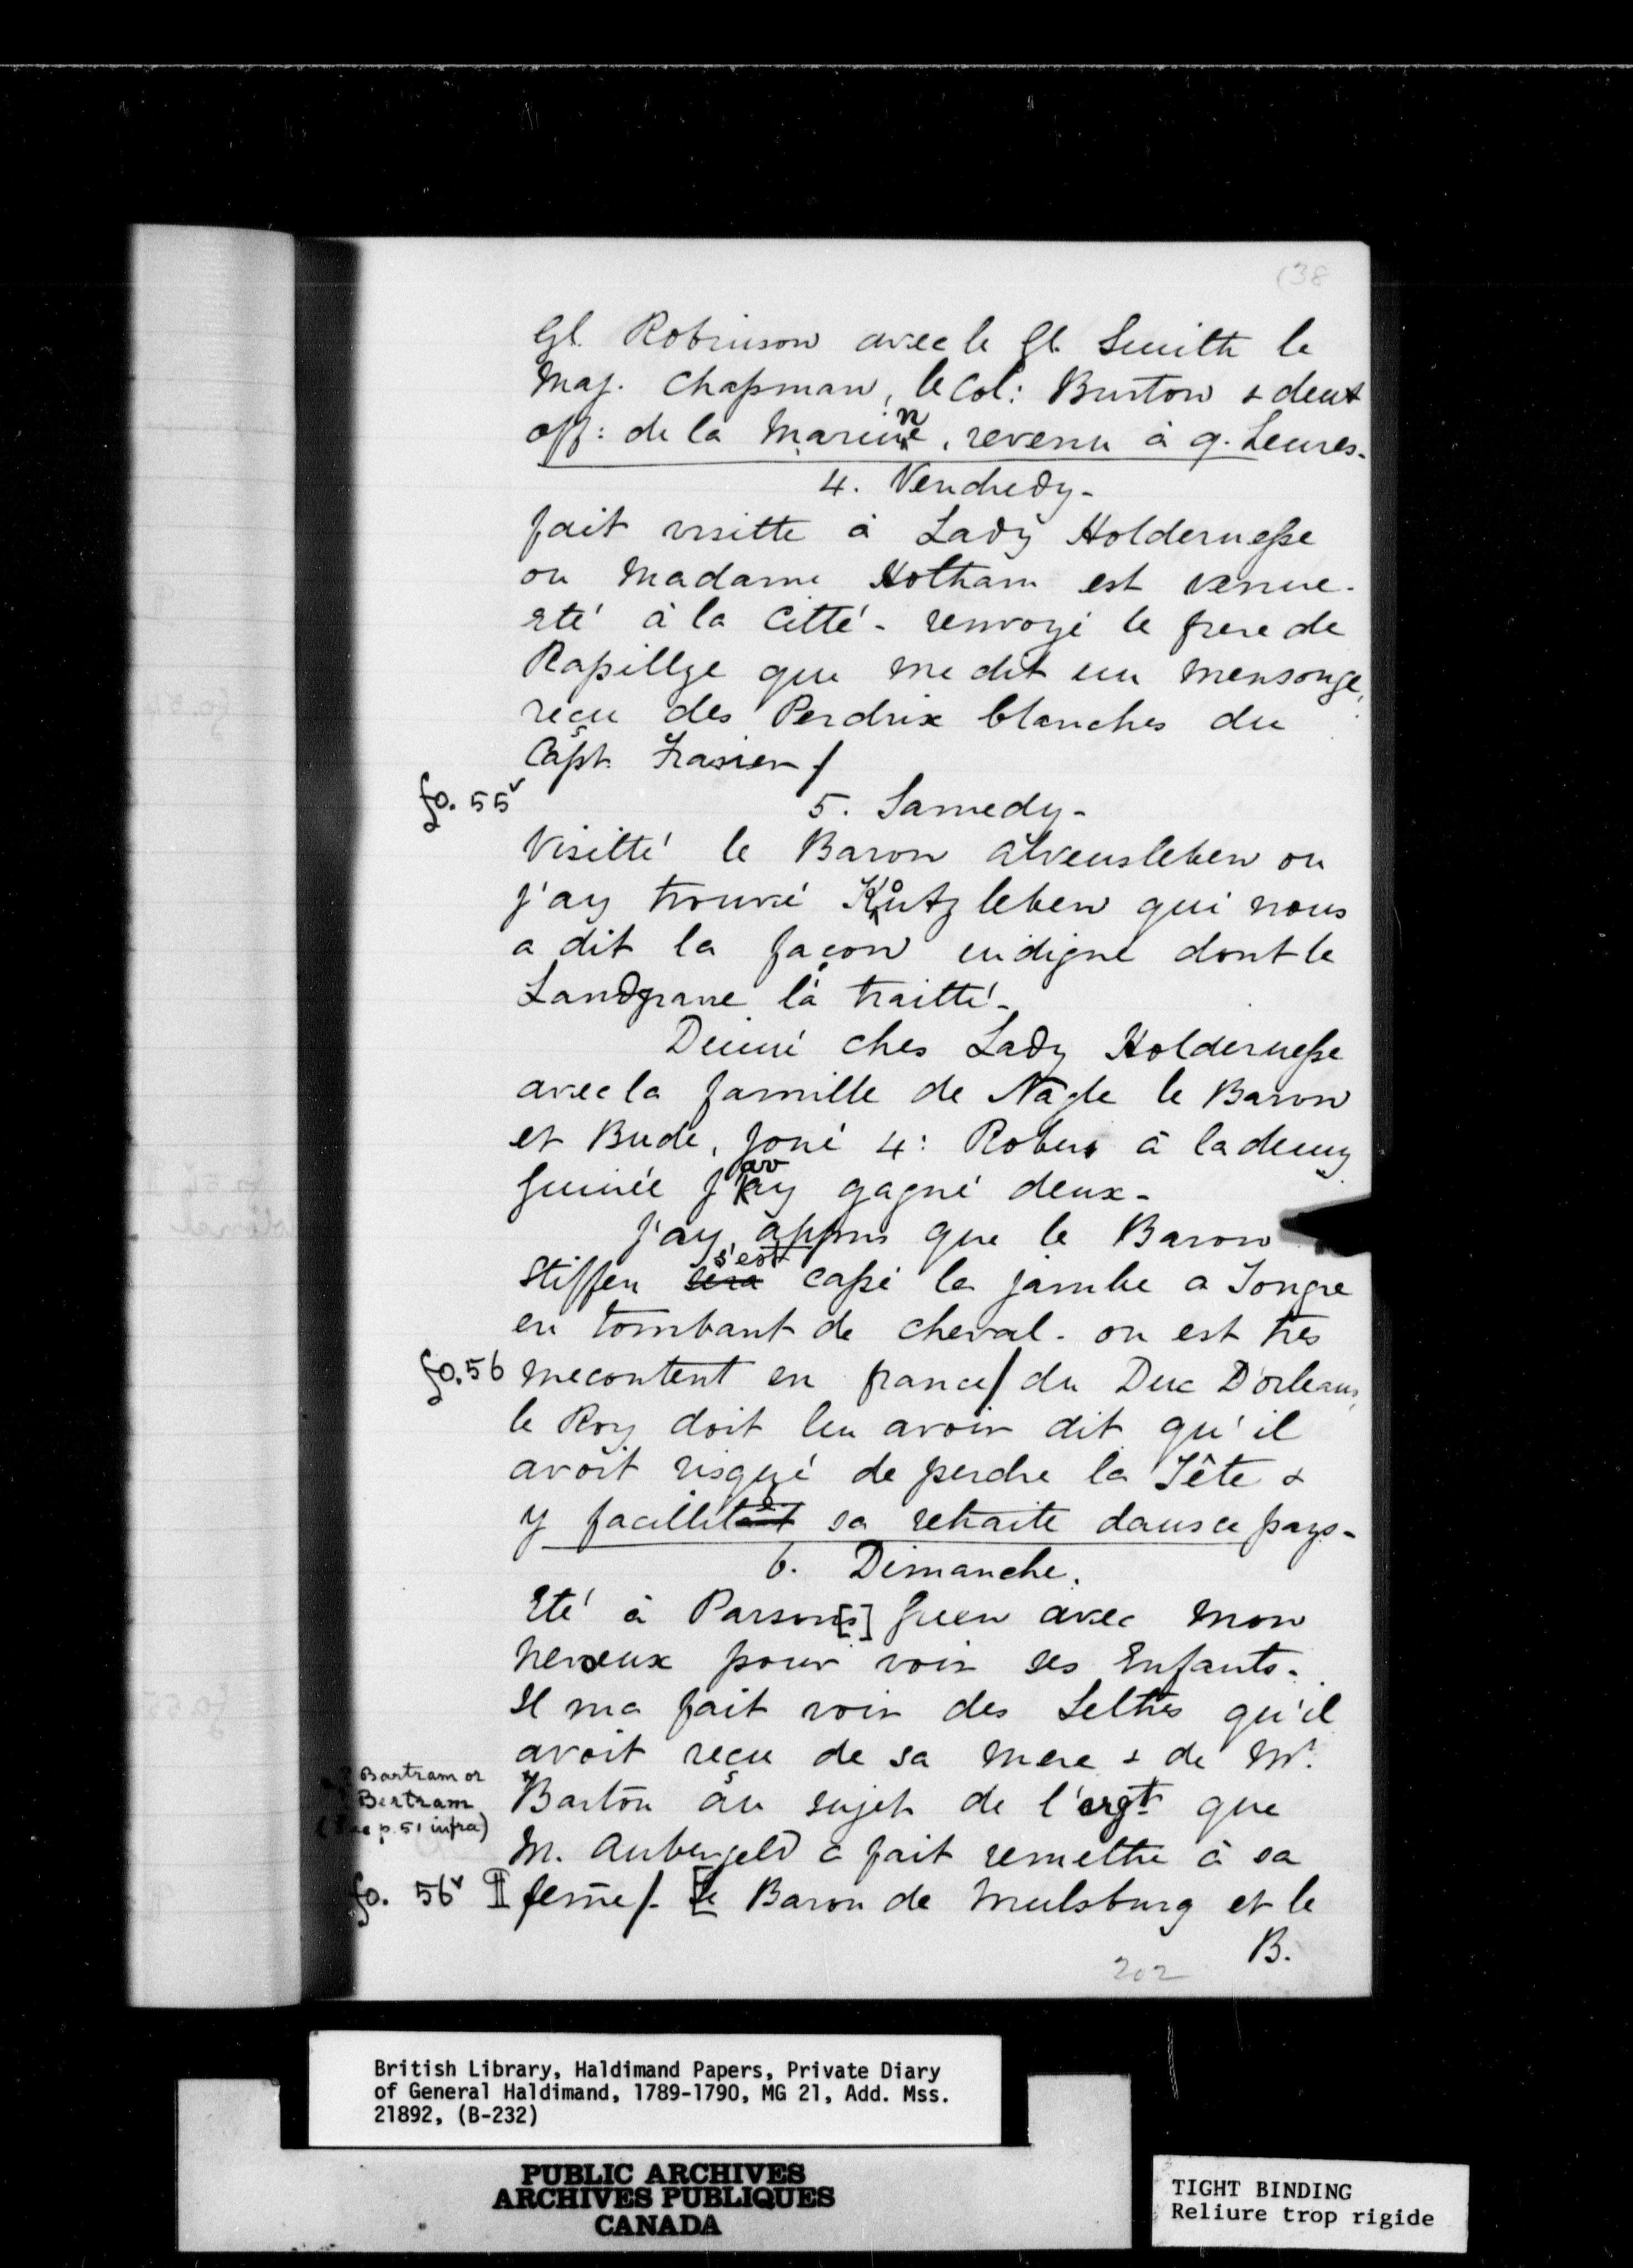 (38
Gl. Robinson avec le Gl. Smith le
Maj. Chapman, le Col: Burton & deux
off: de la Marine, revenu à 9. heures-
4. Vendredy-
fait visitte à Lady Holdernesse
ou Madame Hotham est venue.
eté à la Citté - renvoyé le frere de
Rapillge que me dit un mensonge,
reçu des Perdrix blanches du
Capt. Frasier/
fo. 55v
5. Samedy-
Visitté le Baron alvensleben ou
j'ay trouvé Kutzleben qui nous
a dit la façon indigne dont le
Landgrave l'a traitté-
Dinné ches Lady Holdernesse
avec la famille de Nagle le Baron
et Bude, joué 4: Robers à la demy
Guinée j'ay gagné deux-
av
j'ay appris que le Baron
Stiffen sera s'est cassé la jambe a Tongre
en tombant de cheval - on est tres
fo. 56 mecontent en france/ du Duc D'orleans,
le Roy doit lui avoir dit qu'il
avoit risqué de perdre la Tête &
y facillitant sa retraite dans ce pays-
6. Dimanche.
Eté à Parson[s] Green avec mon
neveux pour voir ses Enfants-
Il ma fait voir des Lettres qu'il
avoit reçu de sa mere & de Mr.
? Bartram or
Bertram
(See p. 51 infra)
Barton au sujet de l'argt que
M. Auberjeld a fait remettre à sa
fo. 56v feme/. [Le Baron de Mulsburg et le
B.
202
British Library, Haldimand Papers, Private Diary
of General Haldimand, 1789-1790, MG 21, Add. Mss.
21892, (B-232)
PUBLIC ARCHIVES
ARCHIVES PUBLIQUES
CANADA
TIGHT BINDING
Reliure trop rigide